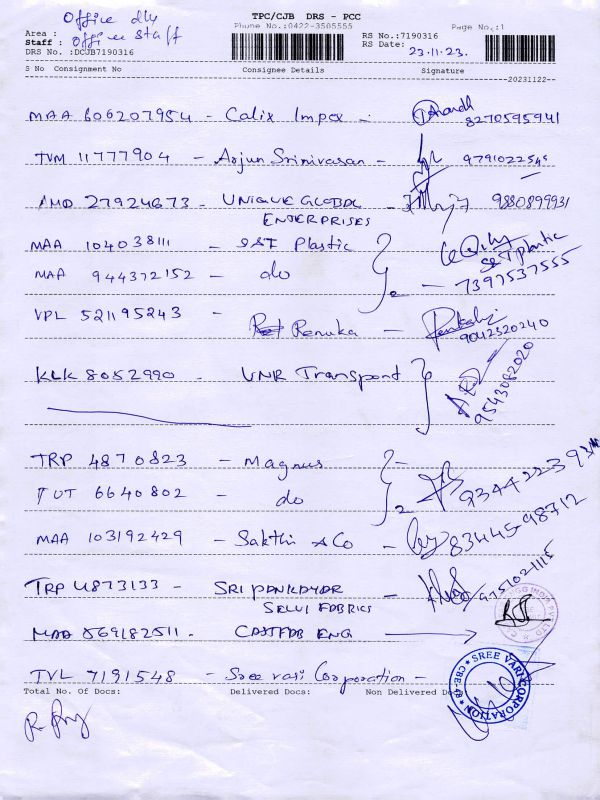 Office dly
TPC/CJB DRS - PCC
Phone No.:0422-3505555
Page No.:1
Area :
Staff : Office Staff
RS No.:7190316
DRS No. :DCJB7190316
RS Date: 23.11.23.
S No Consignment No Consignee Details Signature
20231122
MAA 606207954 - Calix Impex - Anandh
8270595941
TVM 11777904 - Arjun Srinivasan -
AMD 27924673 - UNIQUE GLOBAL 9880899931
ENTERPRISES
MAA 104038111 - S&T Plastic
S&T plastic
MAA 944372152 - do 2 - 7397537555
VPL 521195243 - Renuka -
9042320240
KLK 8052990 - VNR Transport
9543082020
TRP 4870823 - Magnus
TUT 6640802 - do 2
MAA 103192429 - Sakthi & Co - 8344598712
TRP 4873133 - SRI PANKAYAR 9751021115
SELVI FABRICS
MAA 869182511. CASTFAB ENG
TVL 7191548 - Sree vari Corporation -
SREE VARI CORPORATION
CBE-48
Total No. Of Docs: Delivered Docs: Non Delivered Docs